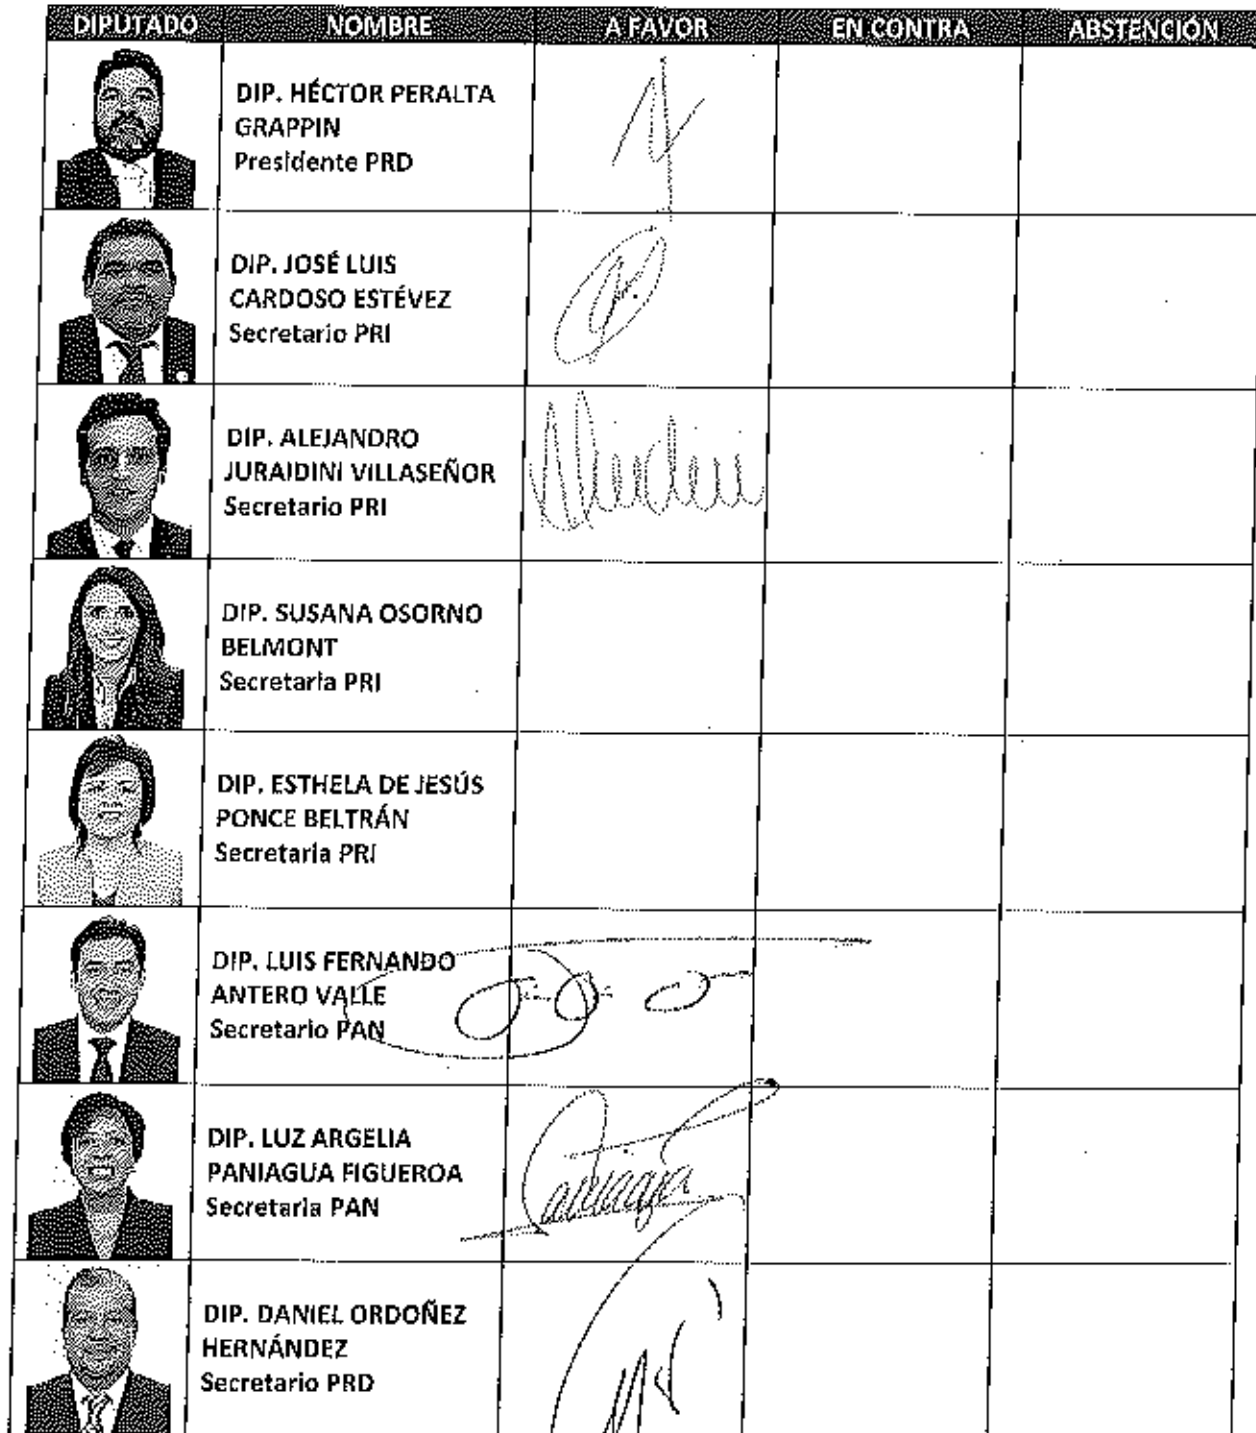 DIPUTADO NOMBRE A FAVOR EN CONTRA ABSTENCIÓN
DIP. HÉCTOR PERALTA
GRAPPIN
Presidente PRD
DIP. JOSÉ LUIS
CARDOSO ESTÉVEZ
Secretario PRI
DIP. ALEJANDRO
JURAIDINI VILLASEÑOR
Secretario PRI
DIP. SUSANA OSORNO
BELMONT
Secretaria PRI
DIP. ESTHELA DE JESÚS
PONCE BELTRÁN
Secretaria PRI
DIP. LUIS FERNANDO
ANTERO VALLE
Secretario PAN
DIP. LUZ ARGELIA
PANIAGUA FIGUEROA
Secretaria PAN
DIP. DANIEL ORDOÑEZ
HERNÁNDEZ
Secretario PRD